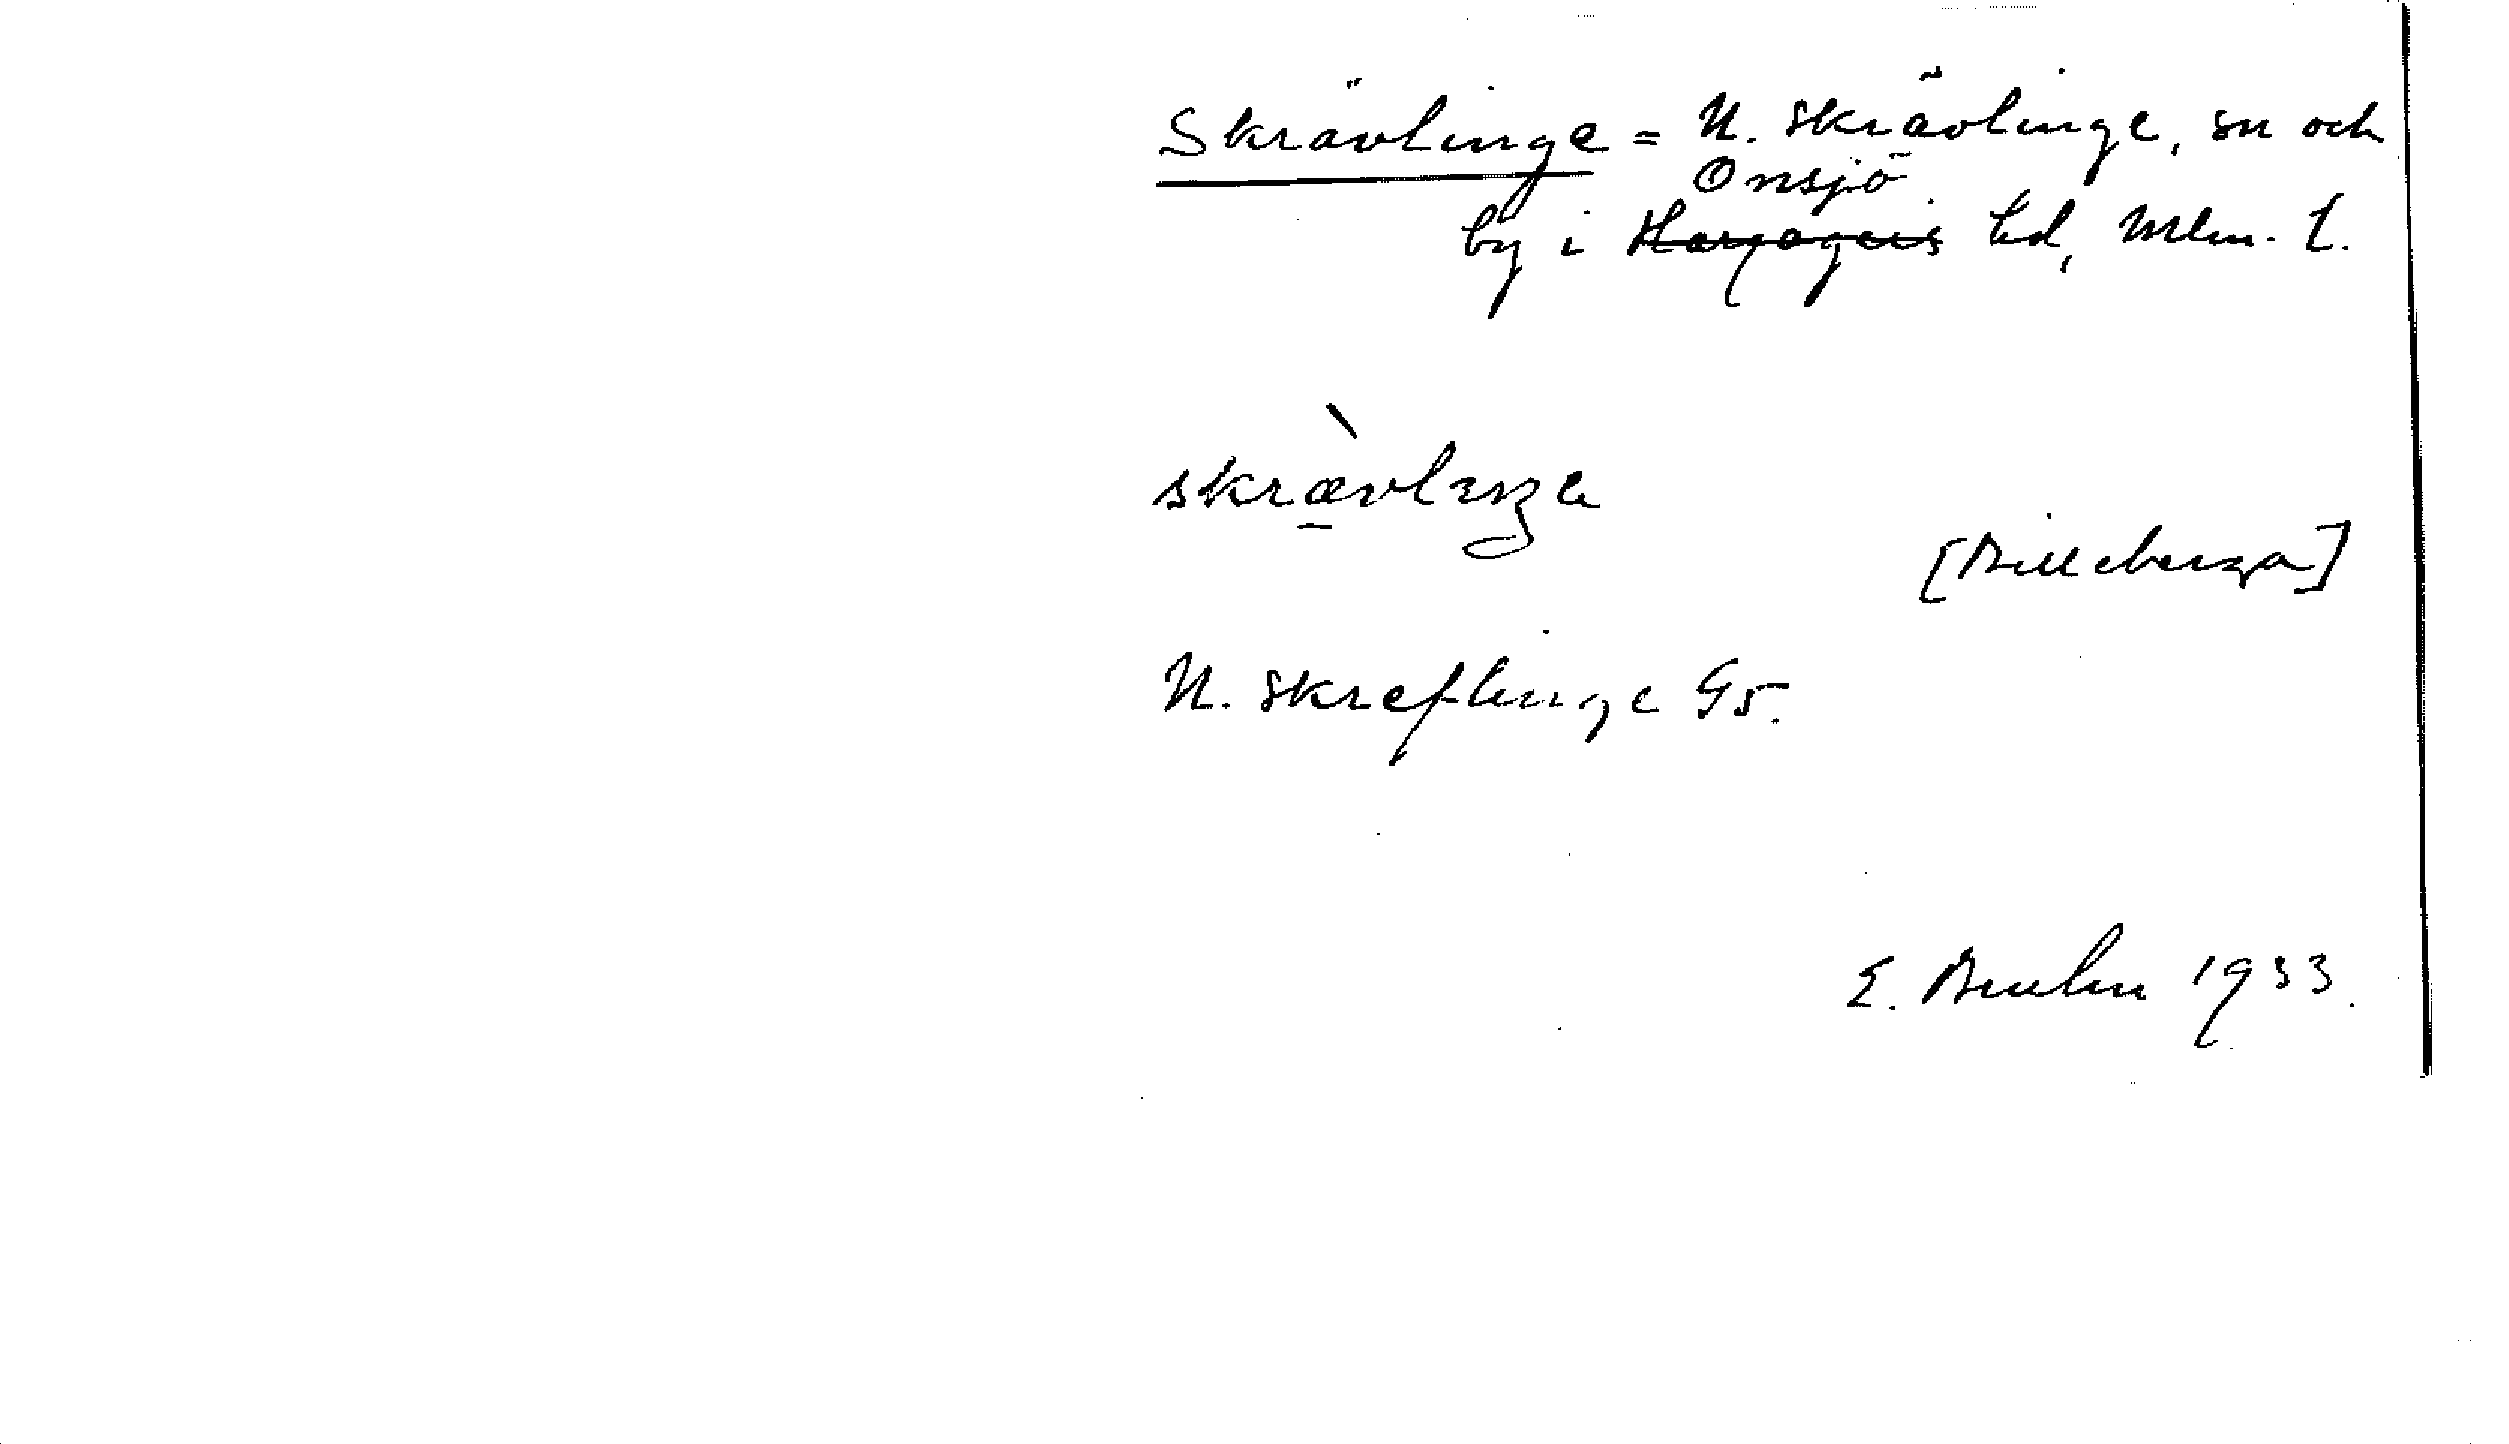 Skrävlinge = N. Skrävlinge, sn och
Onsjö
by i Harjagers hd, Mlm. l.
skrævlɪŋe
[Billeberga]
N. Skreflinge G5.
E. Bruhn 1933.